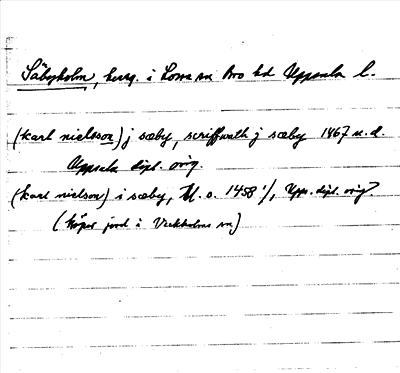 Säbyholm, herrg. i Låssa sn Bro hd Uppsala l.
(karl nielsson) j sæby, scriffwath j sæby 1467 u.d.
Uppsala dipl. orig.
(karl nielson) i sæby, Kl. o. 1458 1/1 Upps. dipl. orig.
(köper jord i Veckholms sn)